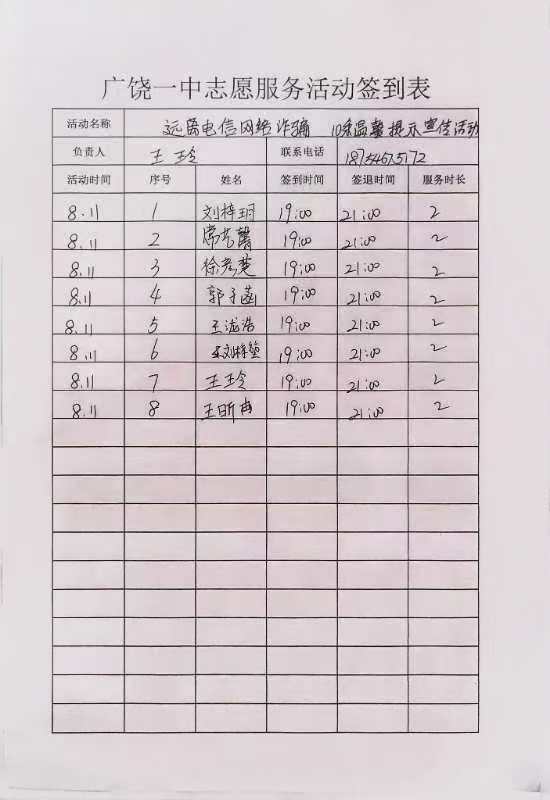 广饶一中志愿服务活动签到表
活动名称 远离电信网络诈骗 10条温馨提示宣传活动
负责人 王玲 联系电话
活动时间 序号 姓名 签到时间 签退时间 服务时长
8.11 1 刘梓玥 19:00 21:00 2
8.11 2 19:00 21:00 2
8.11 3 19:00 21:00 2
8.11 4 郭子菡 19:00 21:00 2
8.11 5 王泷浩 19:00 21:00 2
8.11 6 19:00 21:00 2
8.11 7 王玲 19:00 21:00 2
8.11 8 王昕冉 19:00 21:00 2